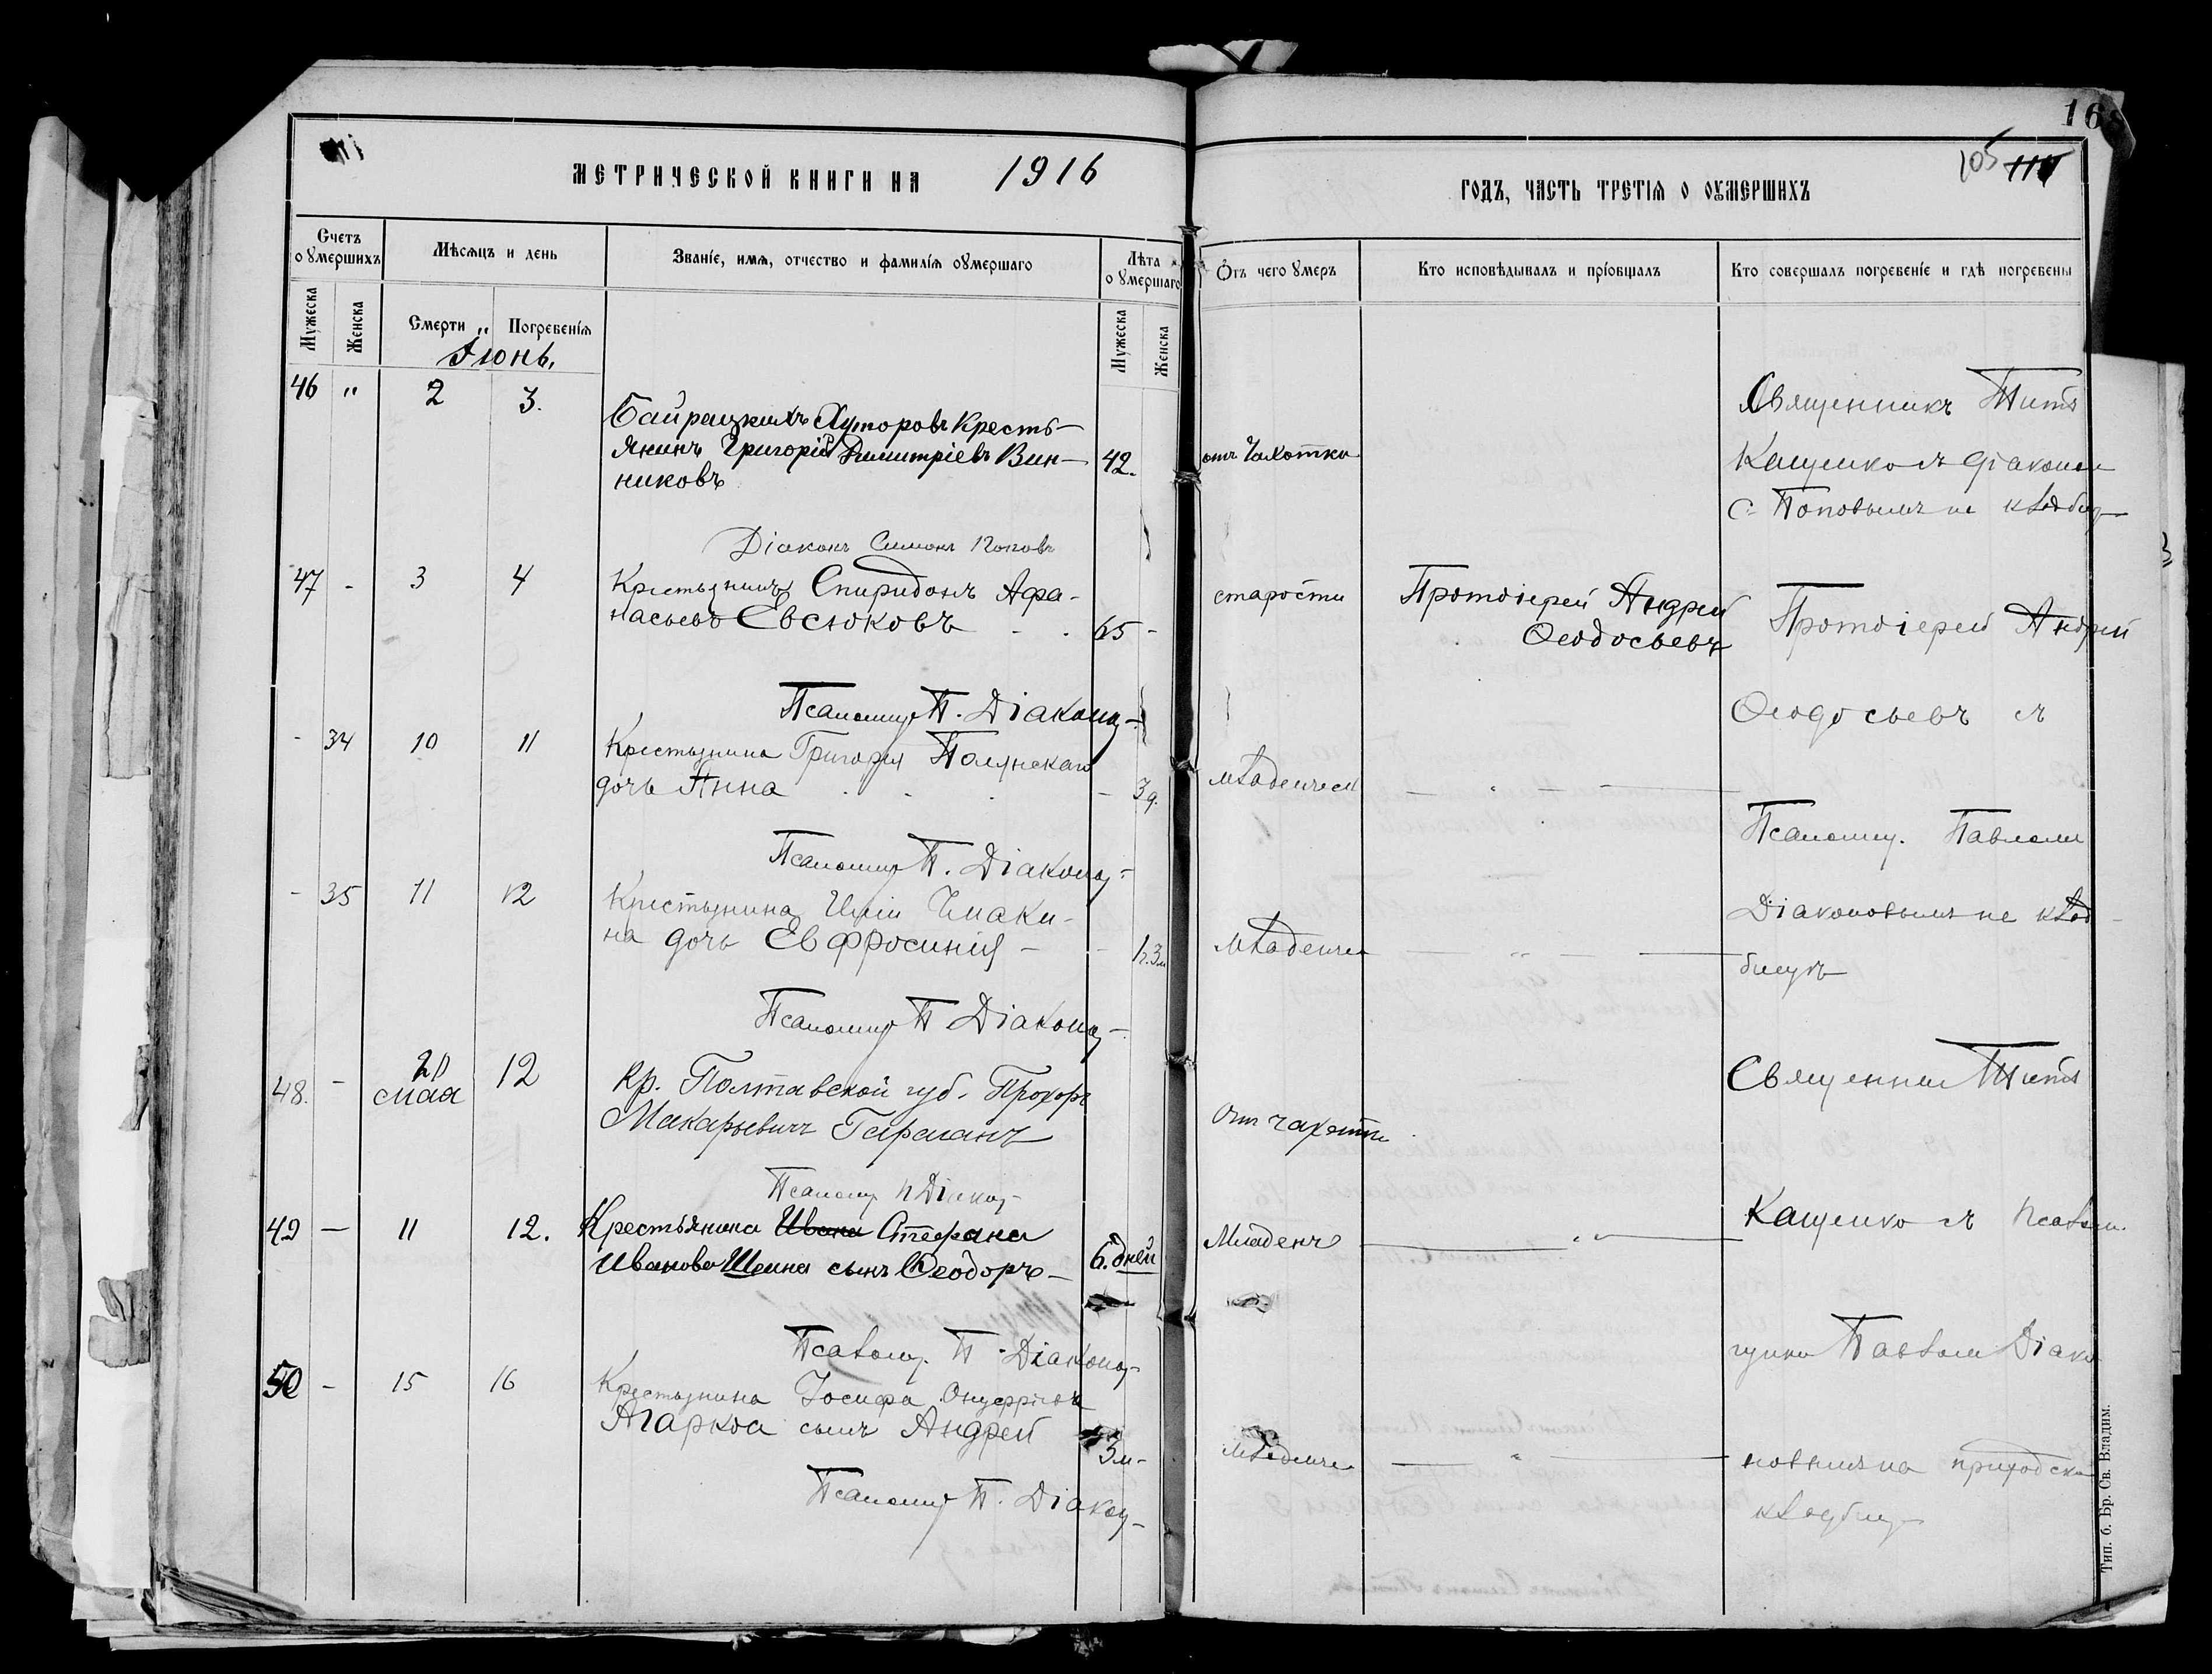 168
105 114
МЕТРИЧЕСКОЙ КНИГИ НА 1916
ГОДЪ, ЧАСТЬ ТРЕТІЯ О ОУМЕРШИХЪ
Счетъ оумершихъ
Мѣсяцъ и день
Званіе, имя, отчество и фамилія оумершаго
Лѣта оумершаго
Отъ чего умеръ
Кто исповѣдывалъ и пріобщалъ
Кто совершалъ погребеніе и гдѣ погребены
Мужеска
Женска
Смерти
Погребенія
Мужеска
Женска
Іюнь.
46 " 2 3.
Байрацкихъ Хуторовъ Кресть-
янинъ Григорій Димитріевъ Вин- 42. отъ Чахотки
никовъ
Священникъ Титъ
Кащенко съ діаконом
С. Поповымъ на кладбищ
Діаконъ Симонъ Поповъ
47 - 3 4 Крестьянинъ Спиридонъ Афа-
насьевъ Евсюковъ 65 - старости Протоіерей Андрей
Ѳеодосьевъ
Протоіерей Андрей
Псаломщ П. Діаконов
Ѳеодосьевъ съ
- 34 10 11 Крестьянина Григорія Полянскаго
дочь Анна - 3 д. младенческ
Псаломщ. Павлом
Псаломщ П. Діаконов
- 35 11 12 Крестьянина Иліи Чмаки-
на дочь Евфросинія - 1г.3м младенче
Діаконовымъ на клад-
бищѣ
Псаломщ П Діаконов
48. - 21 мая 12 Кр. Полтавской губ. Прохоръ
Макарьевичъ Гарманъ Отъ чахотки
Священни Титъ
Псаломщ П Діакон
49 — 11 12. Крестьянина Ивана Стефана
Иванова Шеина сынъ Ѳеодоръ 6. дней Младенч
Кащенко съ псалом.
Псаломщ. П. Діаконов
щико Павлом Діако
50 - 15 16 Крестьянина Іосифа Онуфріева
Агаркоа сынъ Андрей 3м- младенче
новымъ на приходско
кладбищ
Псаломщ П. Діакон
Тип. б. Бр. Св. Владим.